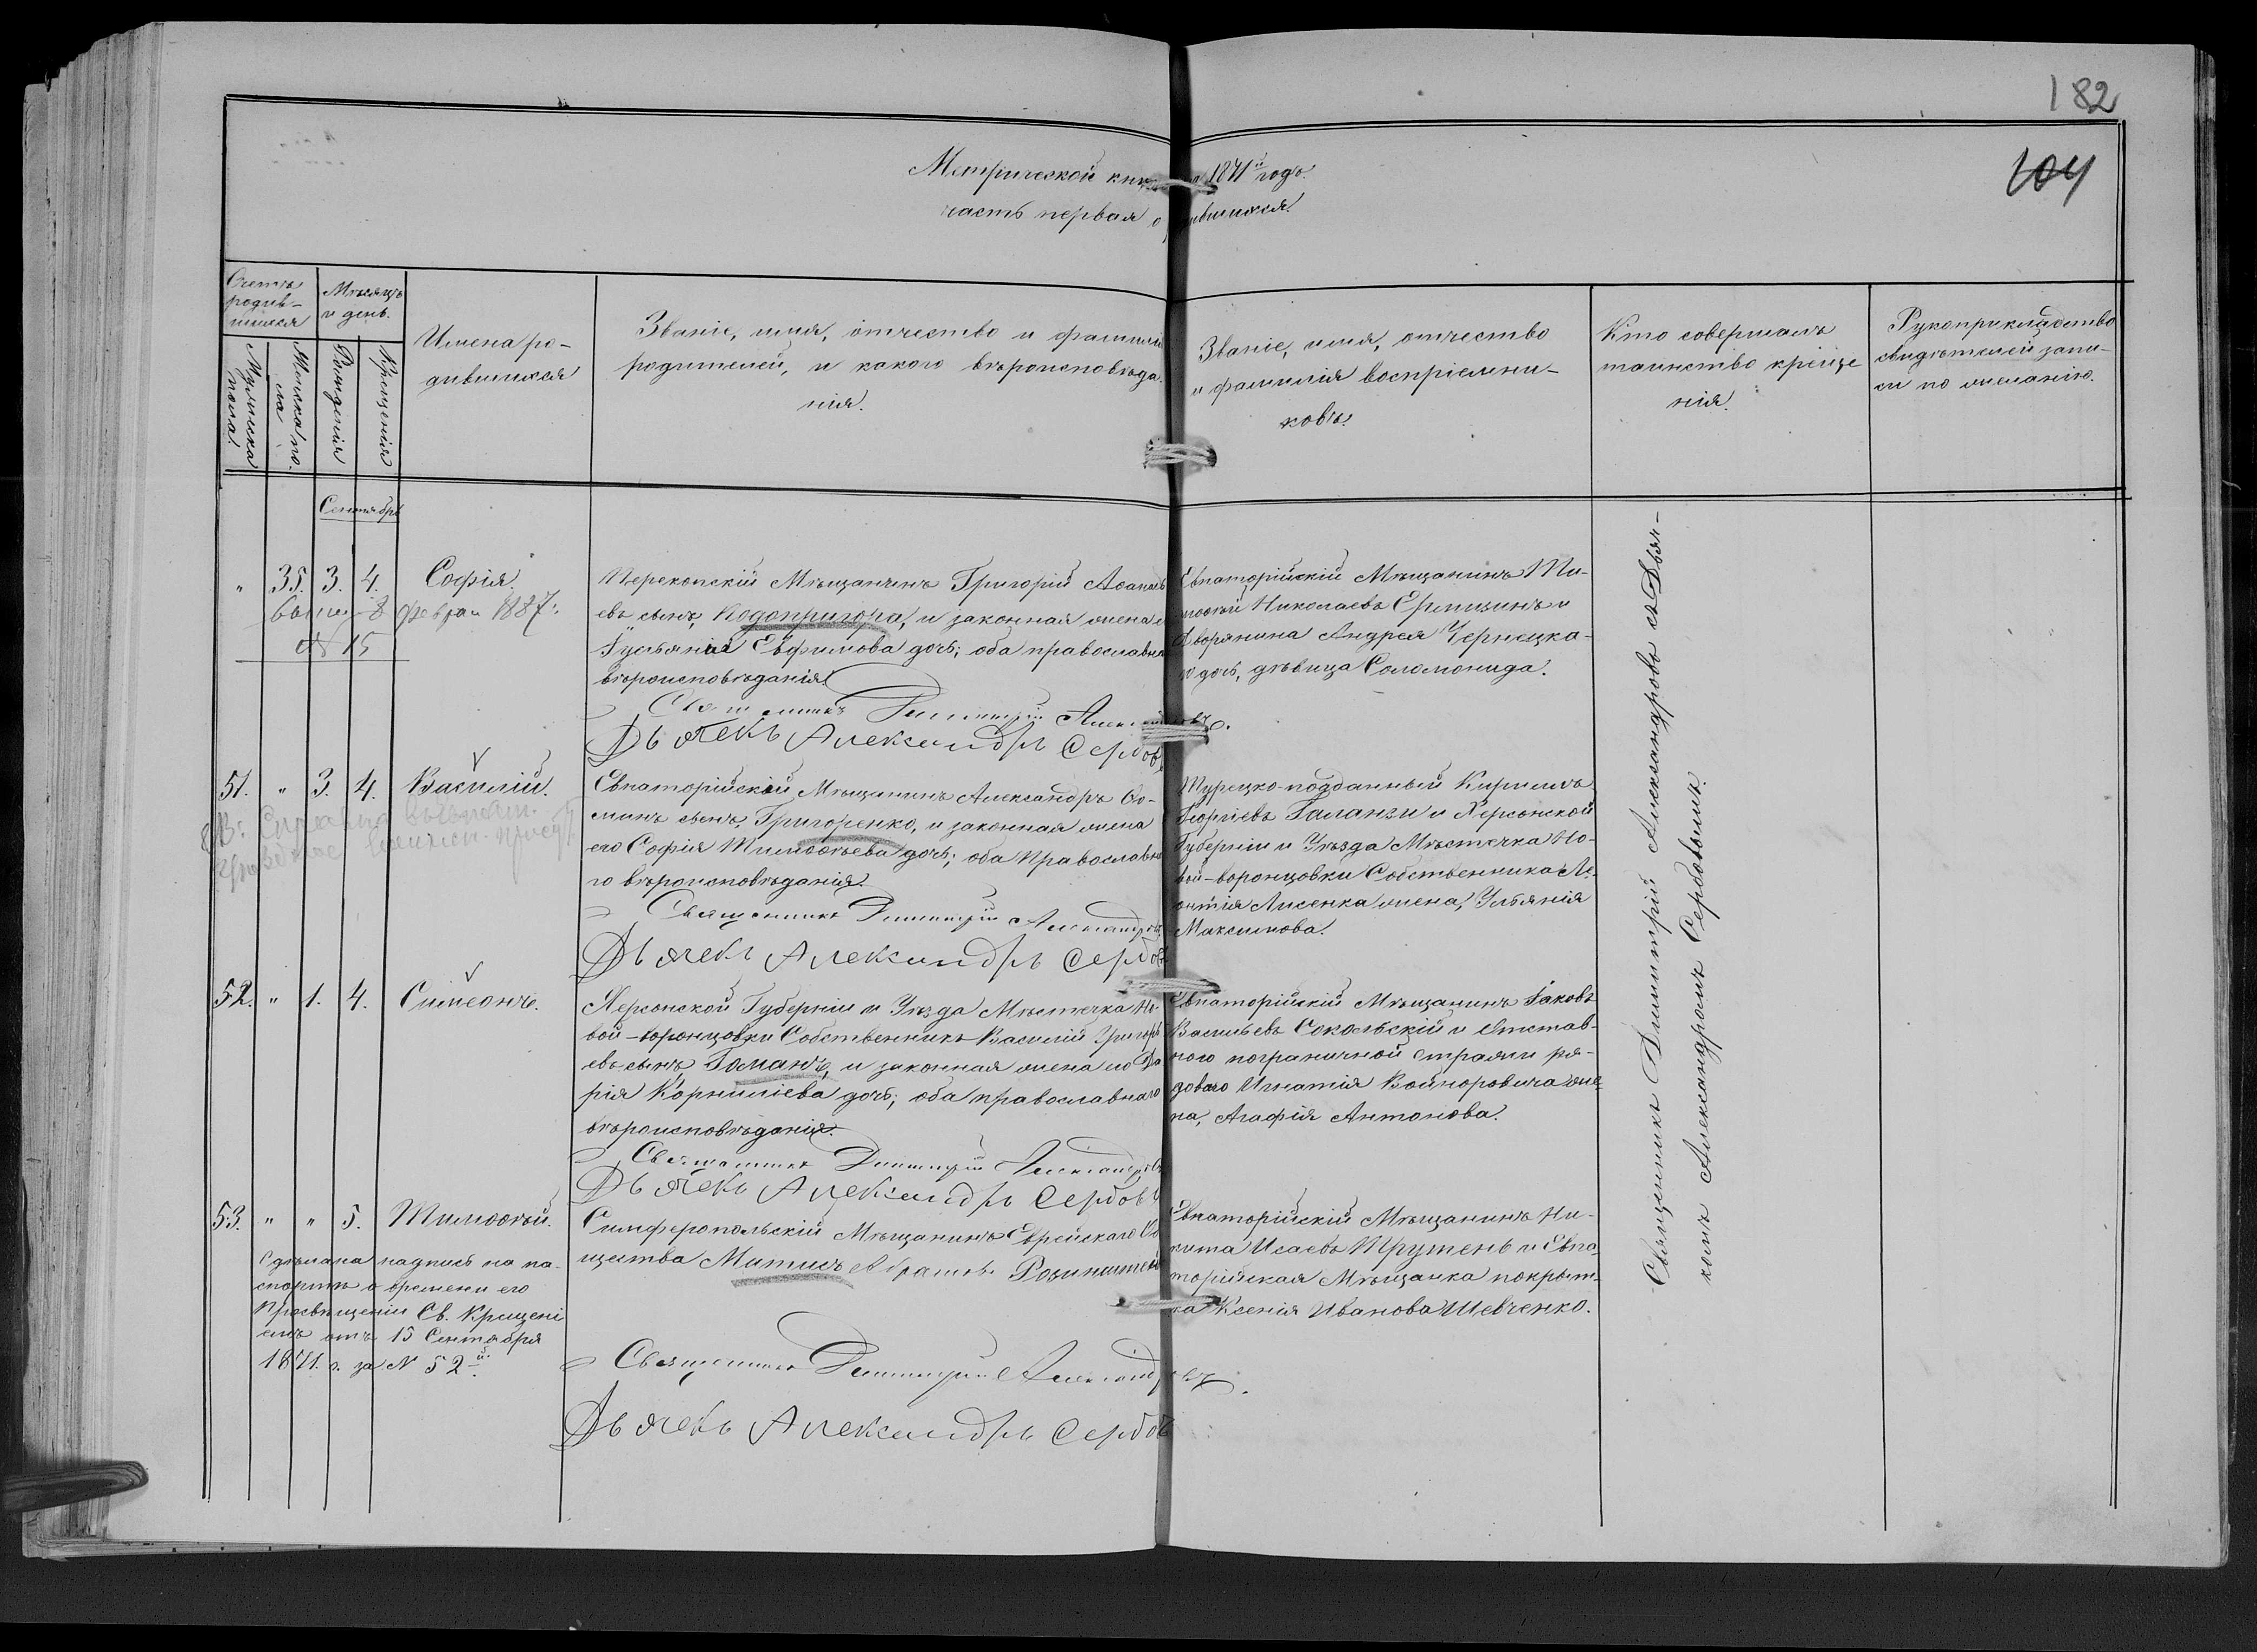 182
104
Метрической книги на 1871й годъ.
часть первая о родившихся.
Счетъ родив-
шихся
Мѣсяцъ
и день.
Мужеска
пола.
Женска по-
ла.
Рожденія
Крещенія
Имена ро-
дившихся
Званіе, имя, отчество и фамилія
родителей, и какого вѣроисповѣда-
нія.
Званіе, имя, отчество
и фамилія воспріемни-
ковъ.
Кто совершалъ
таинство креще
нія.
Рукоприкладство
свидѣтелей запи-
си по желанію.
Сентябрь
" 35. 3. 4. София.
8 феврал 1887.
№ 15
Перекопскій Мѣщанинъ Григорій Аѳанась
евъ сынъ, Кодопригора, и законная жена е
Іуліанія Евфимова дочь; оба православна
вѣроисповѣданія.
Священникъ Димитрій Александровъ.
Дьячекъ Александръ Сербовъ
Евпаторійскій Мѣщанинъ Ти-
моѳей Николаевъ Еремизинъ и
Дворянина Андрея Чернецка-
го дочь, дѣвица Соломонида.
51. " 3. 4. Василій.
Евпаторійскій Мѣщанинъ Александръ Ѳо-
минъ сынъ, Григоренко, и законная жена
его Софія Тимоѳѣева дочь; оба православна
го вѣроисповѣданія.
Священникъ Димитрій Александровъ
Дьячекъ Александръ Сербовъ
Турецко-подданный Кириллъ
Георгіевъ Галанзи и Херсонской
Губерніи и Уѣзда Мѣстечка Но-
вой-воронцовки Собственника Ле-
онтія Лисенка жена, Ульянія
Максимова.
52. " 1. 4. Симеонъ.
Херсонской Губерніи и Уѣзда Мѣстечка Но-
вой-воронцовки Собственникъ Василій Григорь
евъ сынъ, Гоманъ, и законная жена его Да
рія Корниліева дочь; оба православнаго
вѣроисповѣданія.
Священникъ Димитрій Александровъ
Дьячекъ Александръ Сербовъ
Евпаторійскій Мѣщанинъ Іаковъ
Васильевъ Сокольскій и Отстав-
ного пограничной стражи ря-
дового Игнатія Войноровича же-
на, Агафія Антонова.
53. " " 5. Тимоѳей.
Сдѣлана надпись на па-
спортѣ о времени его
просвѣщеніи Св. Крещені
емъ отъ 15 Сентября
1871. г. за № 52й.
Симферопольскій Мѣщанинъ Еврейскаго Об
щества Матисъ Абрамовъ Розинштей
Священникъ Димитрій Александровъ.
Дьячекъ Александръ Сербовъ
Евпаторійскій Мѣщанинъ Ни-
кита Исаевъ Трутень и Евпа-
торійская Мѣщанка покрыт-
ка Ксенія Иванова Шевченко.
Священникъ Димитрій Александровъ съ Дьяч-
комъ Александромъ Сербовымъ.